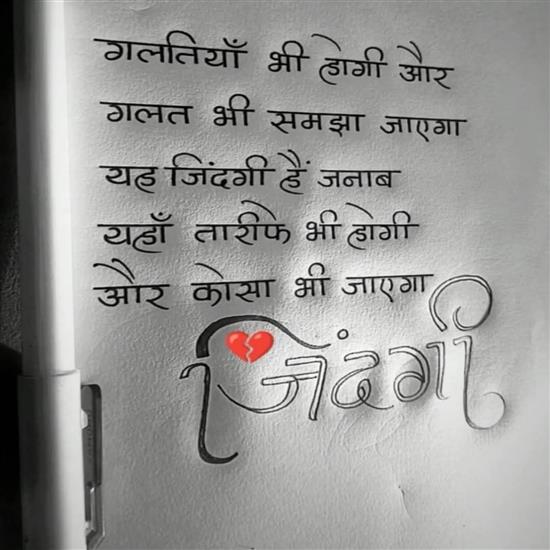 गलतियाँ भी होगी और
गलत भी समझा जाएगा
यह जिंदगी हैं जनाब
यहाँ तारीफे भी होगी
और कोसा भी जाएगा
जिंदगी